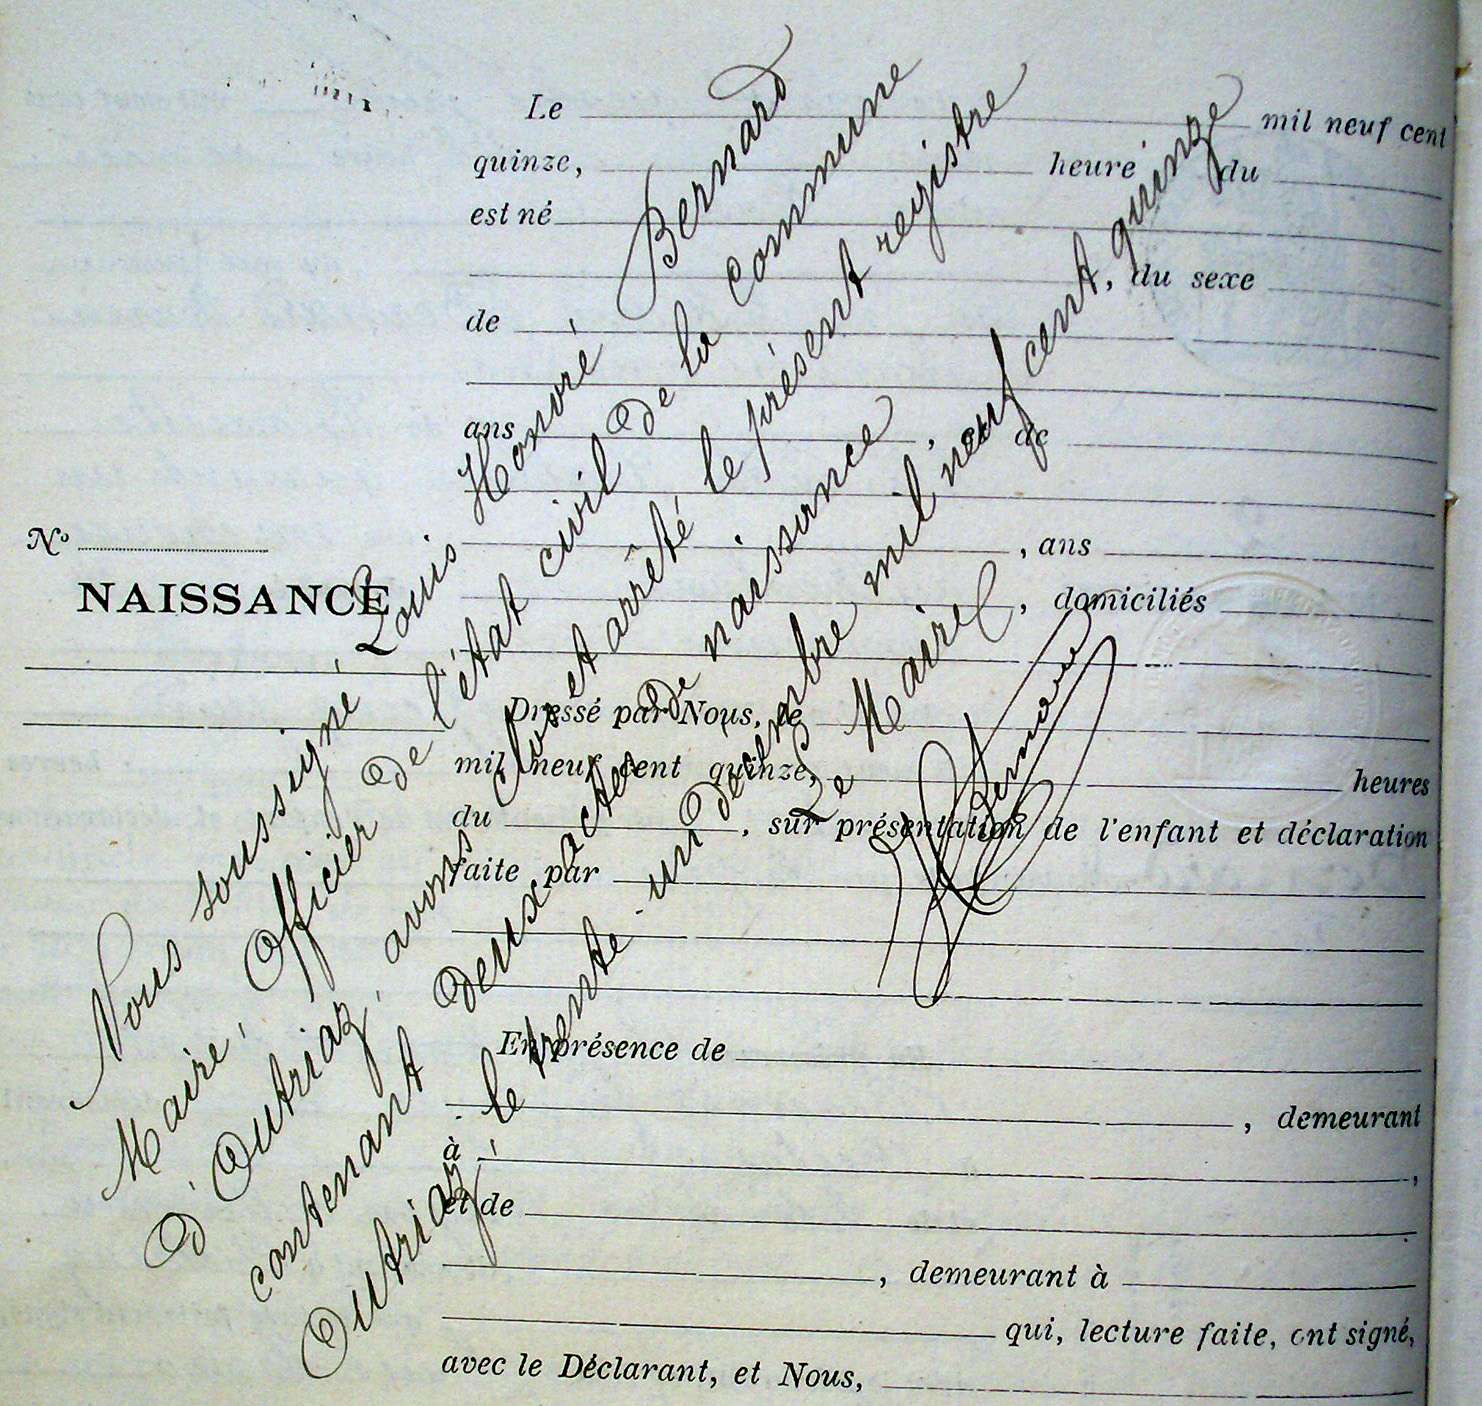 Le mil neuf cent
quinze, heure du
est né
, du sexe
de
ans , et de
N°
, ans
NAISSANCE
, domiciliés
Dressé par Nous, le
mil neuf cent quinze, heures
du , sur présentation de l'enfant et déclaration
faite par
En présence de
, demeurant
à ,
et de
, demeurant à
qui, lecture faite, ont signé,
avec le Déclarant, et Nous,
Nous soussigné, Louis Honoré Bernard
Maire, Officier de l'état civil de la commune
d'Outriaz, avons clos et arrêté le présent registre
contenant deux actes de naissance
Outriaz, le trente-un décembre mil neuf cent quinze
Le Maire
Bernard